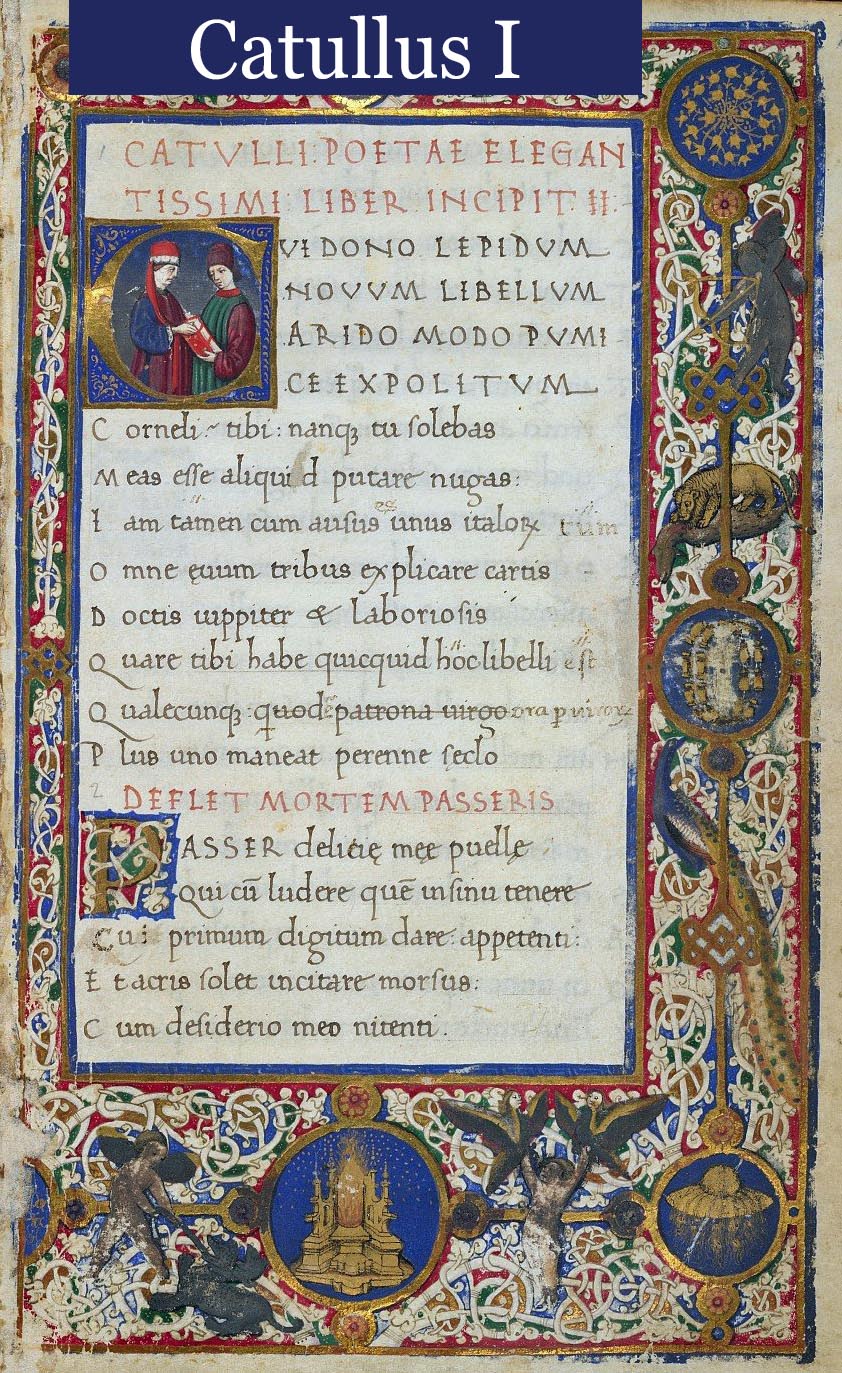 Catullus I
CATVLLI POETAE ELEGAN
TISSIMI LIBER INCIPIT II
VI DONO LEPIDVM
NOVVM LIBELLVM
ARIDO MODO PVMI
CE EXPOLITVM
Corneli tibi: nanqꝫ tu solebas
Meas esse aliquid putare nugas:
Iam tamen cum ausus es unus italoꝝ tum
Omne ęuum tribus explicare cartis
Doctis iuppiter & laboriosis
Quare tibi habe quicquid hoc libelli est
Qualecunqꝫ: quod patrona uirgo
Plus uno maneat perenne seclo
2 DEFLET MORTEM PASSERIS
PASSER delicię meę puellę
Qui cū ludere quē insinu tenere
Cui primum digitum dare: appetenti:
Et acris solet incitare morsus:
Cum desiderio meo nitenti.